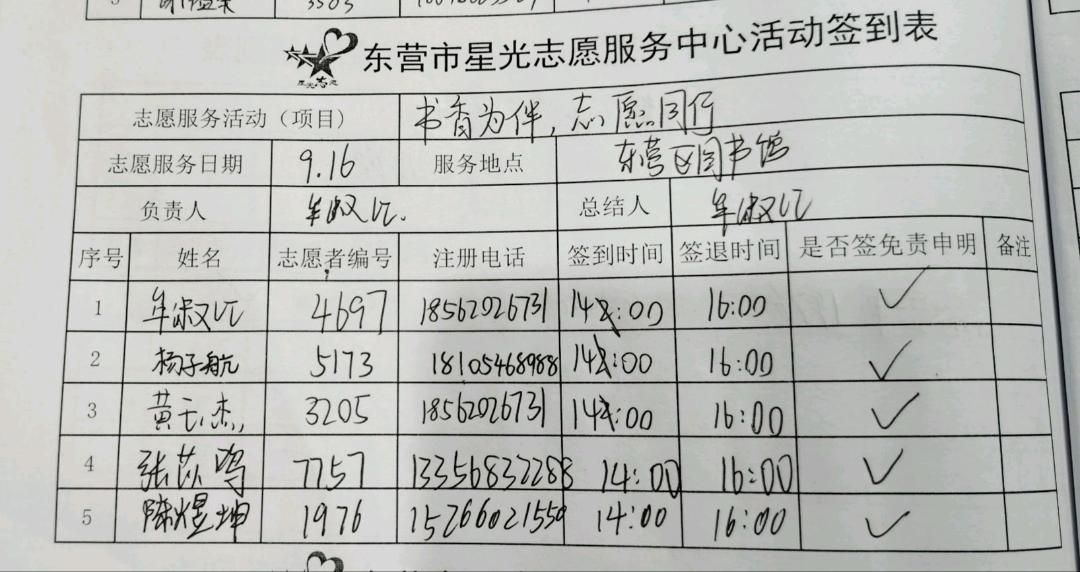 3503
东营市星光志愿服务中心活动签到表
星光志愿
志愿服务活动（项目） 书香为伴，志愿同行
志愿服务日期 9.16 服务地点 东营区图书馆
负责人 牟淑
总结人 牟淑
序号 姓名 志愿者编号 注册电话 签到时间 签退时间 是否签免责申明 备注
1 牟淑 4697 18562026731 14:00 16:00 ✓
2 杨子航 5173 18105468988 14:00 16:00 ✓
3 黄云杰 3205 18562026731 14:00 16:00 ✓
4 张苡鸣 7757 13356832288 14:00 16:00 ✓
5 陈煜坤 1976 15266021550 14:00 16:00 ✓